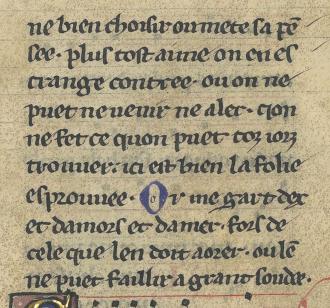 ne bien choisir ou mete sa pē
see· plus tost aime on en es
trange contree· ou on ne
puet ne venir ne aler· con
ne fet ce quon puet toz iorz
trouuer· ici est bien la folie
esprouuee· Or me gart dex
et damors et damer· fors de
cele que len doit aorer· ou lē
ne puet faillir a grant soude·